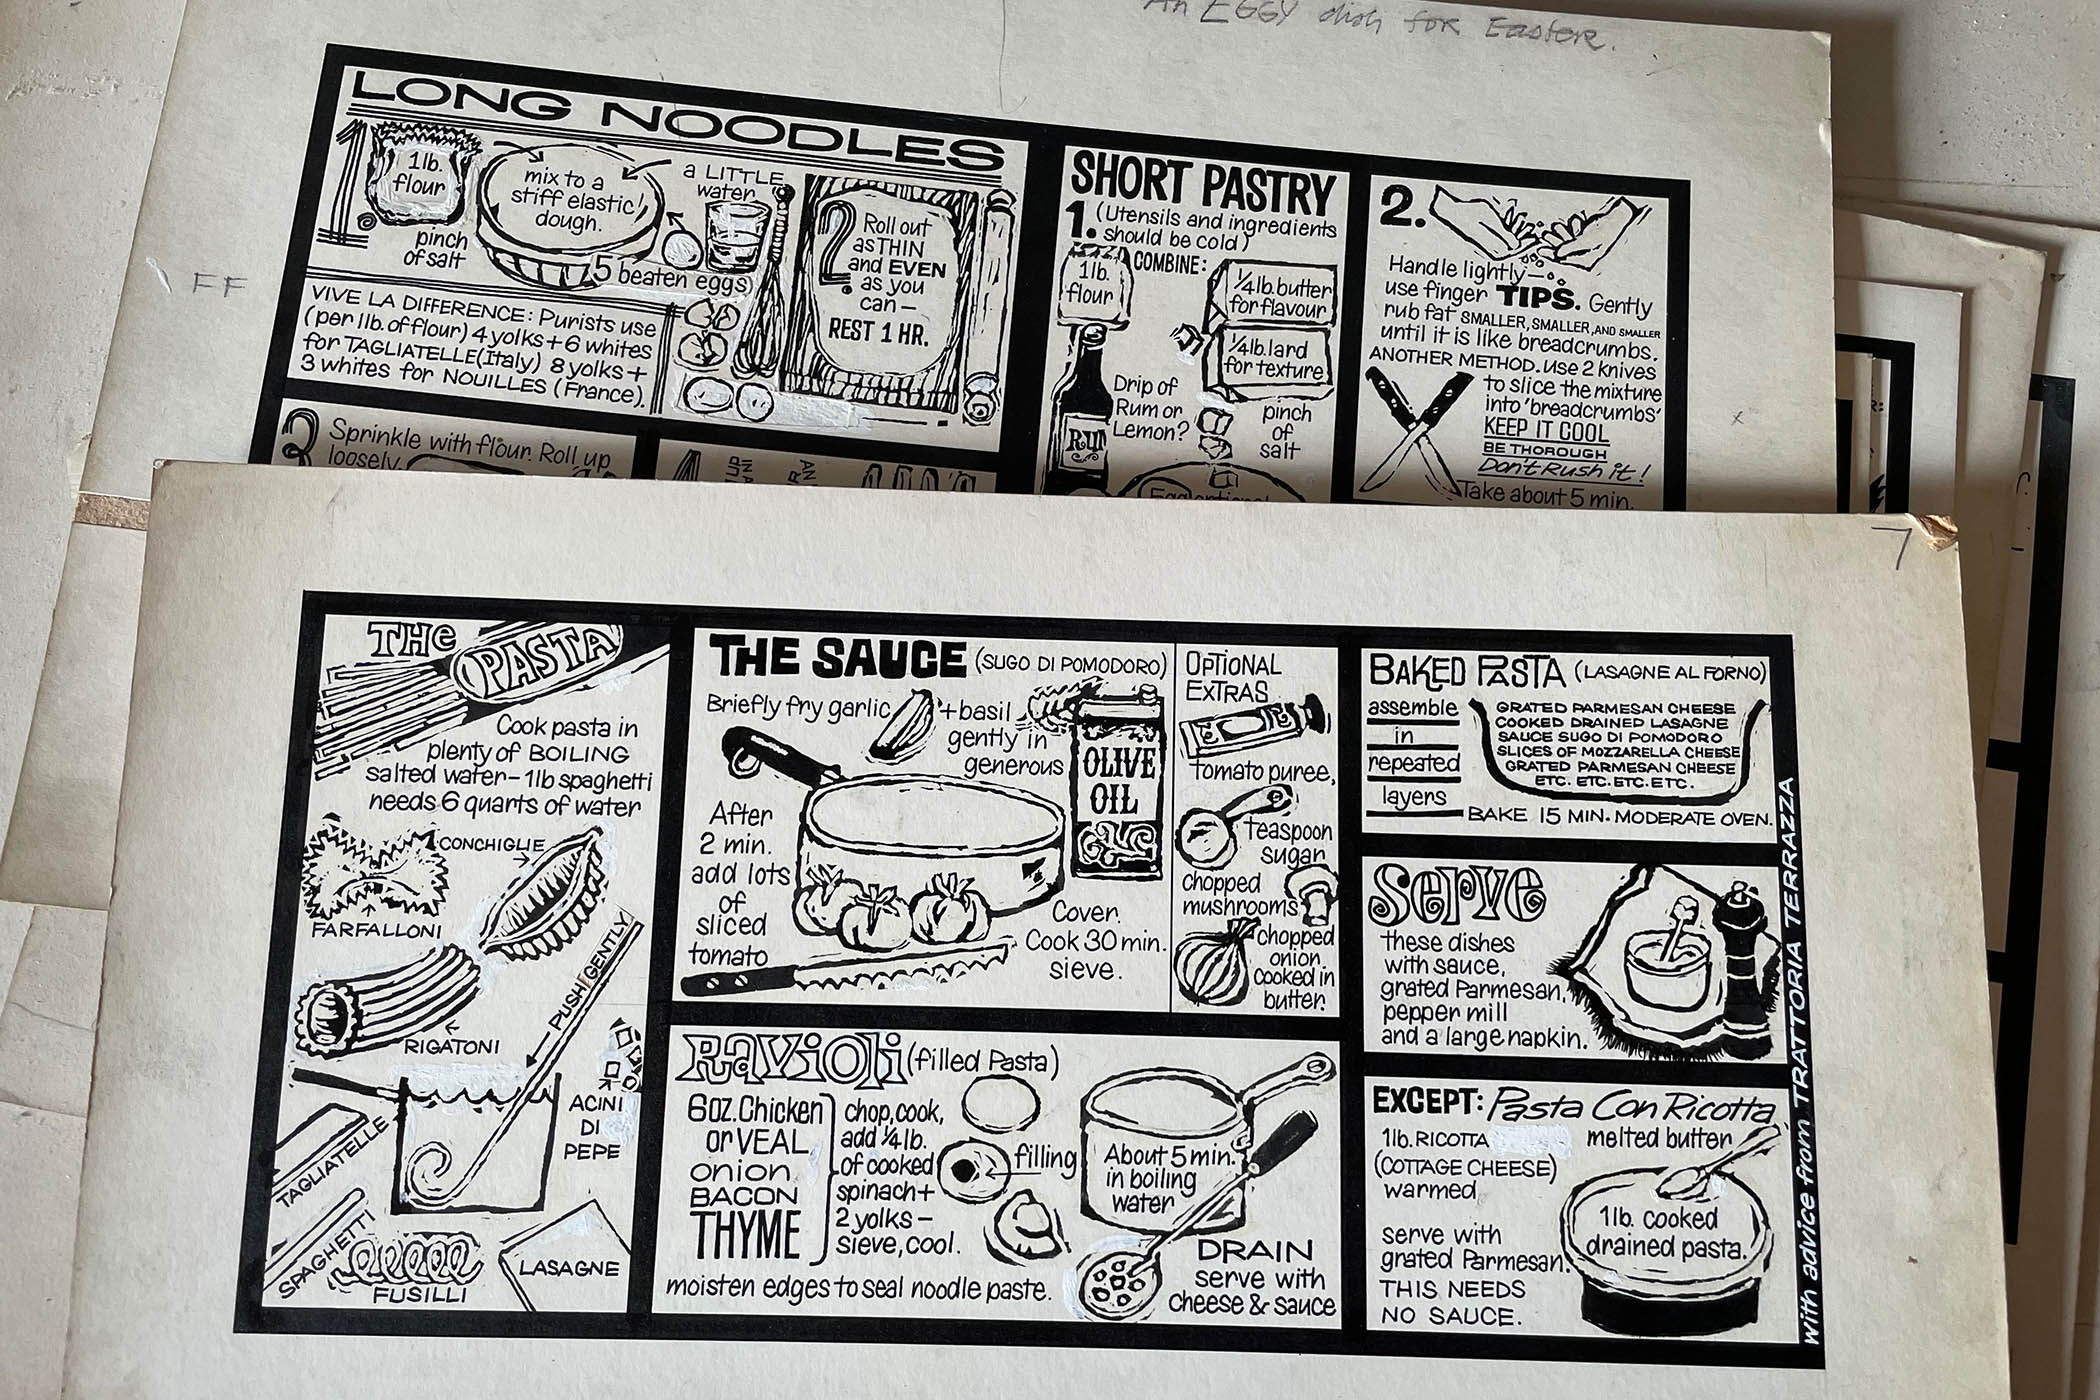 An EGGY dish for Easter.
FF
LONG NOODLES
1.
1lb.
flour
pinch
of salt
mix to a
stiff elastic
dough.
a LITTLE
water
5 beaten eggs
2.
Roll out
as THIN
and EVEN
as you
can—
REST 1 HR.
VIVE LA DIFFERENCE: Purists use
(per 1lb. of flour) 4 yolks + 6 whites
for TAGLIATELLE (Italy) 8 yolks +
3 whites for NOUILLES (France).
3
Sprinkle with flour. Roll up
loosely.
SHORT PASTRY
1. (Utensils and ingredients
should be cold)
COMBINE:
1lb.
flour
1/4 lb. butter
for flavour
1/4 lb. lard
for texture
Drip of
Rum or
Lemon?
RUM
pinch
of
salt
Egg optional
2.
Handle lightly—
use finger TIPS. Gently
rub fat SMALLER, SMALLER, AND SMALLER
until it is like breadcrumbs.
ANOTHER METHOD. use 2 knives
to slice the mixture
into 'breadcrumbs'
KEEP IT COOL
BE THOROUGH
Don't Rush it!
Take about 5 min.
7
THe PASTA
Cook pasta in
plenty of BOILING
salted water – 1lb spaghetti
needs 6 quarts of water
CONCHIGLIE
FARFALLONI
RIGATONI
PUSH GENTLY
ACINI
DI
PEPE
TAGLIATELLE
SPAGHETTI
FUSILLI
LASAGNE
THE SAUCE (SUGO DI POMODORO)
Briefly fry garlic
+ basil
gently in
generous
OLIVE
OIL
After
2 min.
add lots
of
sliced
tomato
Cover.
Cook 30 min.
sieve.
OPTIONAL
EXTRAS
tomato puree,
teaspoon
sugar
chopped
mushrooms
chopped
onion
cooked in
butter.
Ravioli (filled Pasta)
6oz. Chicken
or VEAL
onion
BACON
THYME
chop, cook,
add 1/4 lb.
of cooked
spinach +
2 yolks –
sieve, cool.
filling
About 5 min.
in boiling
water
moisten edges to seal noodle paste.
DRAIN
serve with
cheese & sauce
BAKED PASTA (LASAGNE AL FORNO)
assemble
in
repeated
layers
GRATED PARMESAN CHEESE
COOKED DRAINED LASAGNE
SAUCE SUGO DI POMODORO
SLICES OF MOZZARELLA CHEESE
GRATED PARMESAN CHEESE
ETC. ETC. ETC. ETC.
BAKE 15 MIN. MODERATE OVEN.
Serve
these dishes
with sauce,
grated Parmesan,
pepper mill
and a large napkin.
EXCEPT: Pasta Con Ricotta
1lb. RICOTTA
(COTTAGE CHEESE)
warmed
melted butter
serve with
grated Parmesan.
THIS NEEDS
NO SAUCE.
1lb. cooked
drained pasta.
with advice from TRATTORIA TERRAZZA